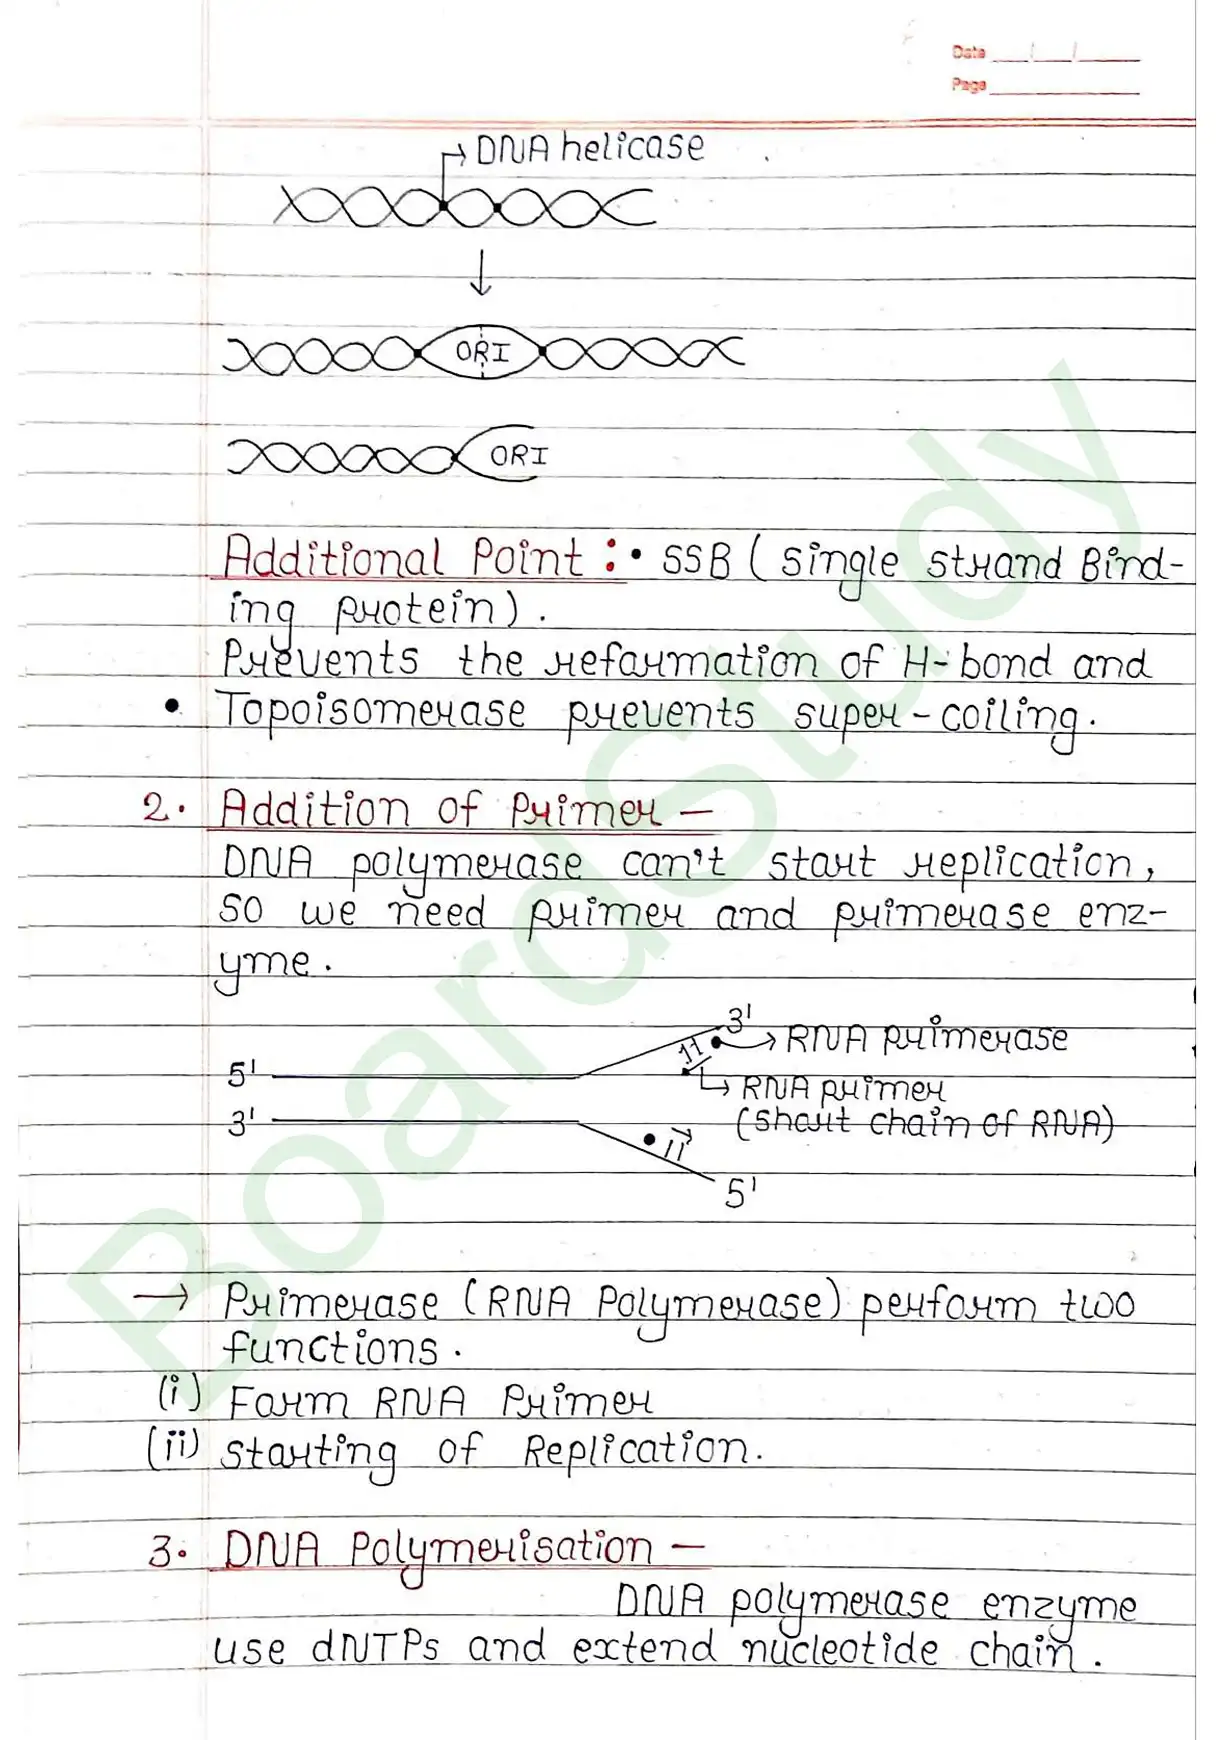 Date __/__/__
Page
DNA helicase
ORI
ORI
Additional Point : • SSB ( Single Strand Bind-
ing protein) .
Prevents the reformation of H-bond and
• Topoisomerase prevents super-coiling.
2. Addition of Primer –
DNA polymerase can't start replication,
so we need primer and primerase enz-
yme.
3'
RNA primerase
5'
RNA primer
3'
(short chain of RNA)
5'
→ Primerase (RNA Polymerase) perform two
functions.
(i) Form RNA Primer
(ii) Starting of Replication.
3. DNA Polymerisation –
DNA polymerase enzyme
use dNTPs and extend nucleotide chain.
BoardStudy